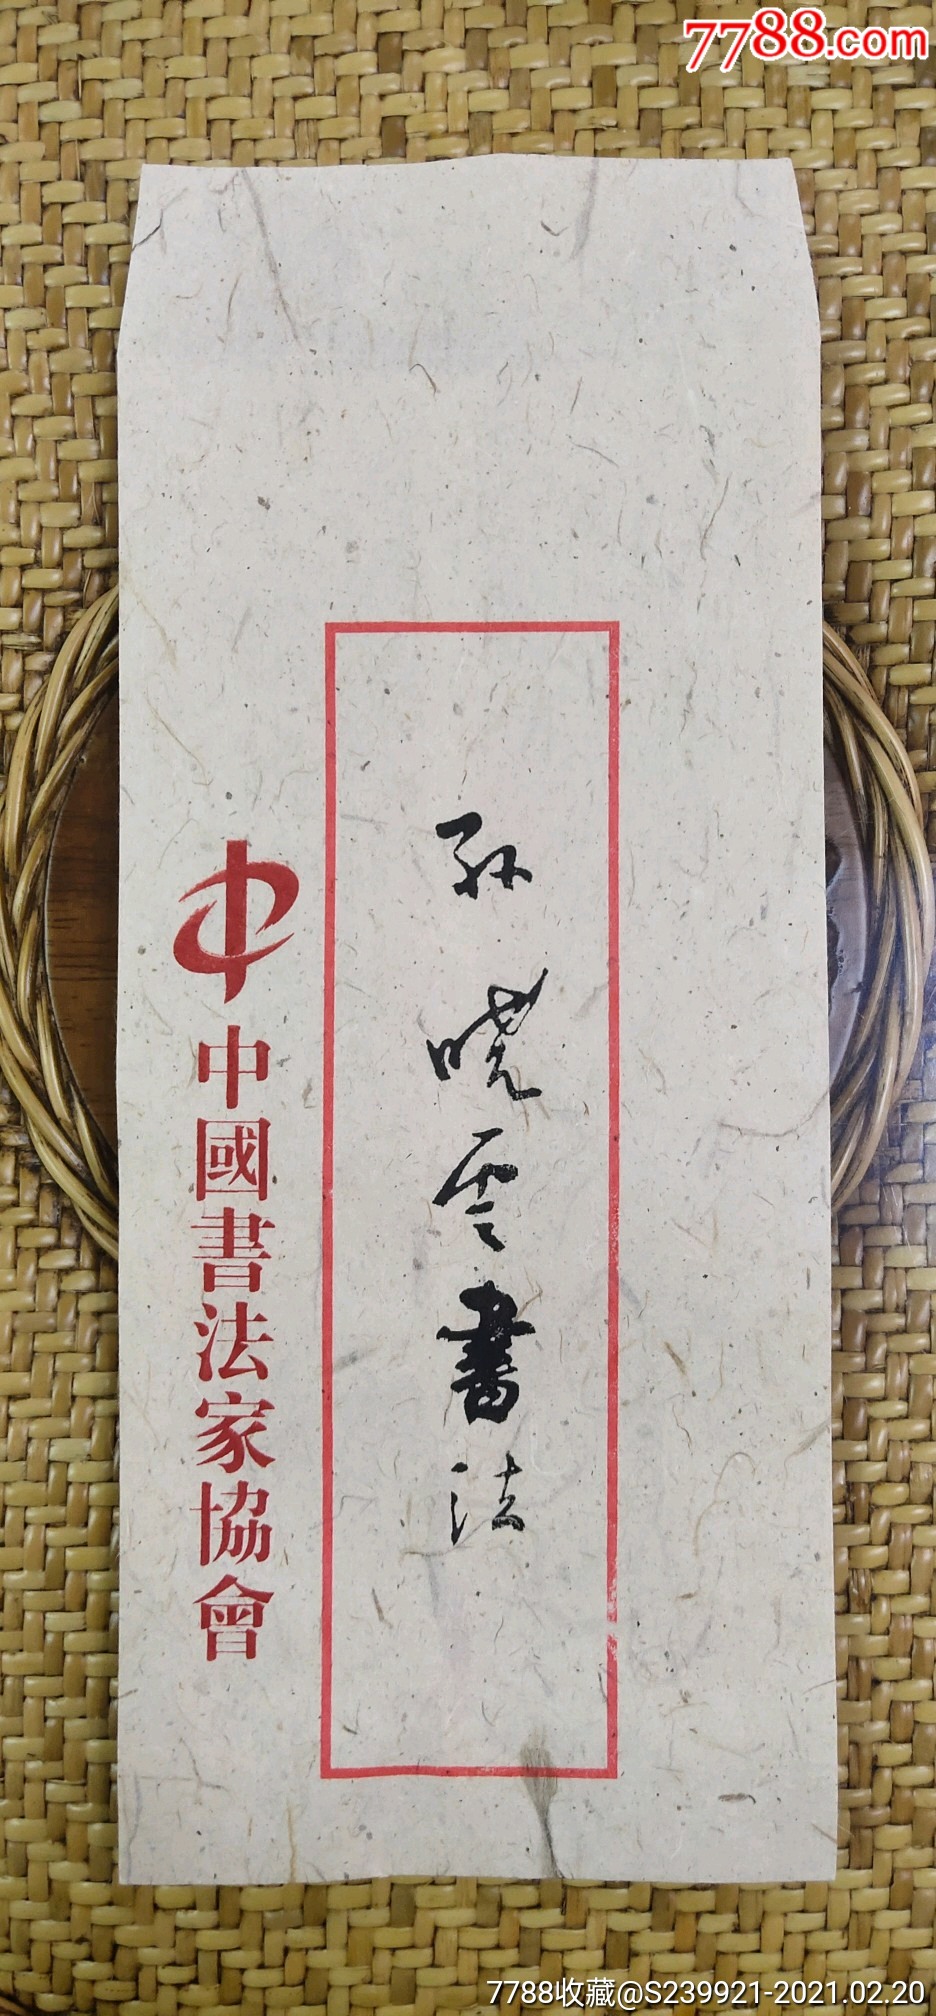 7788.com
孙晓云書法
中國書法家協會
7788收藏@S239921-2021.02.20